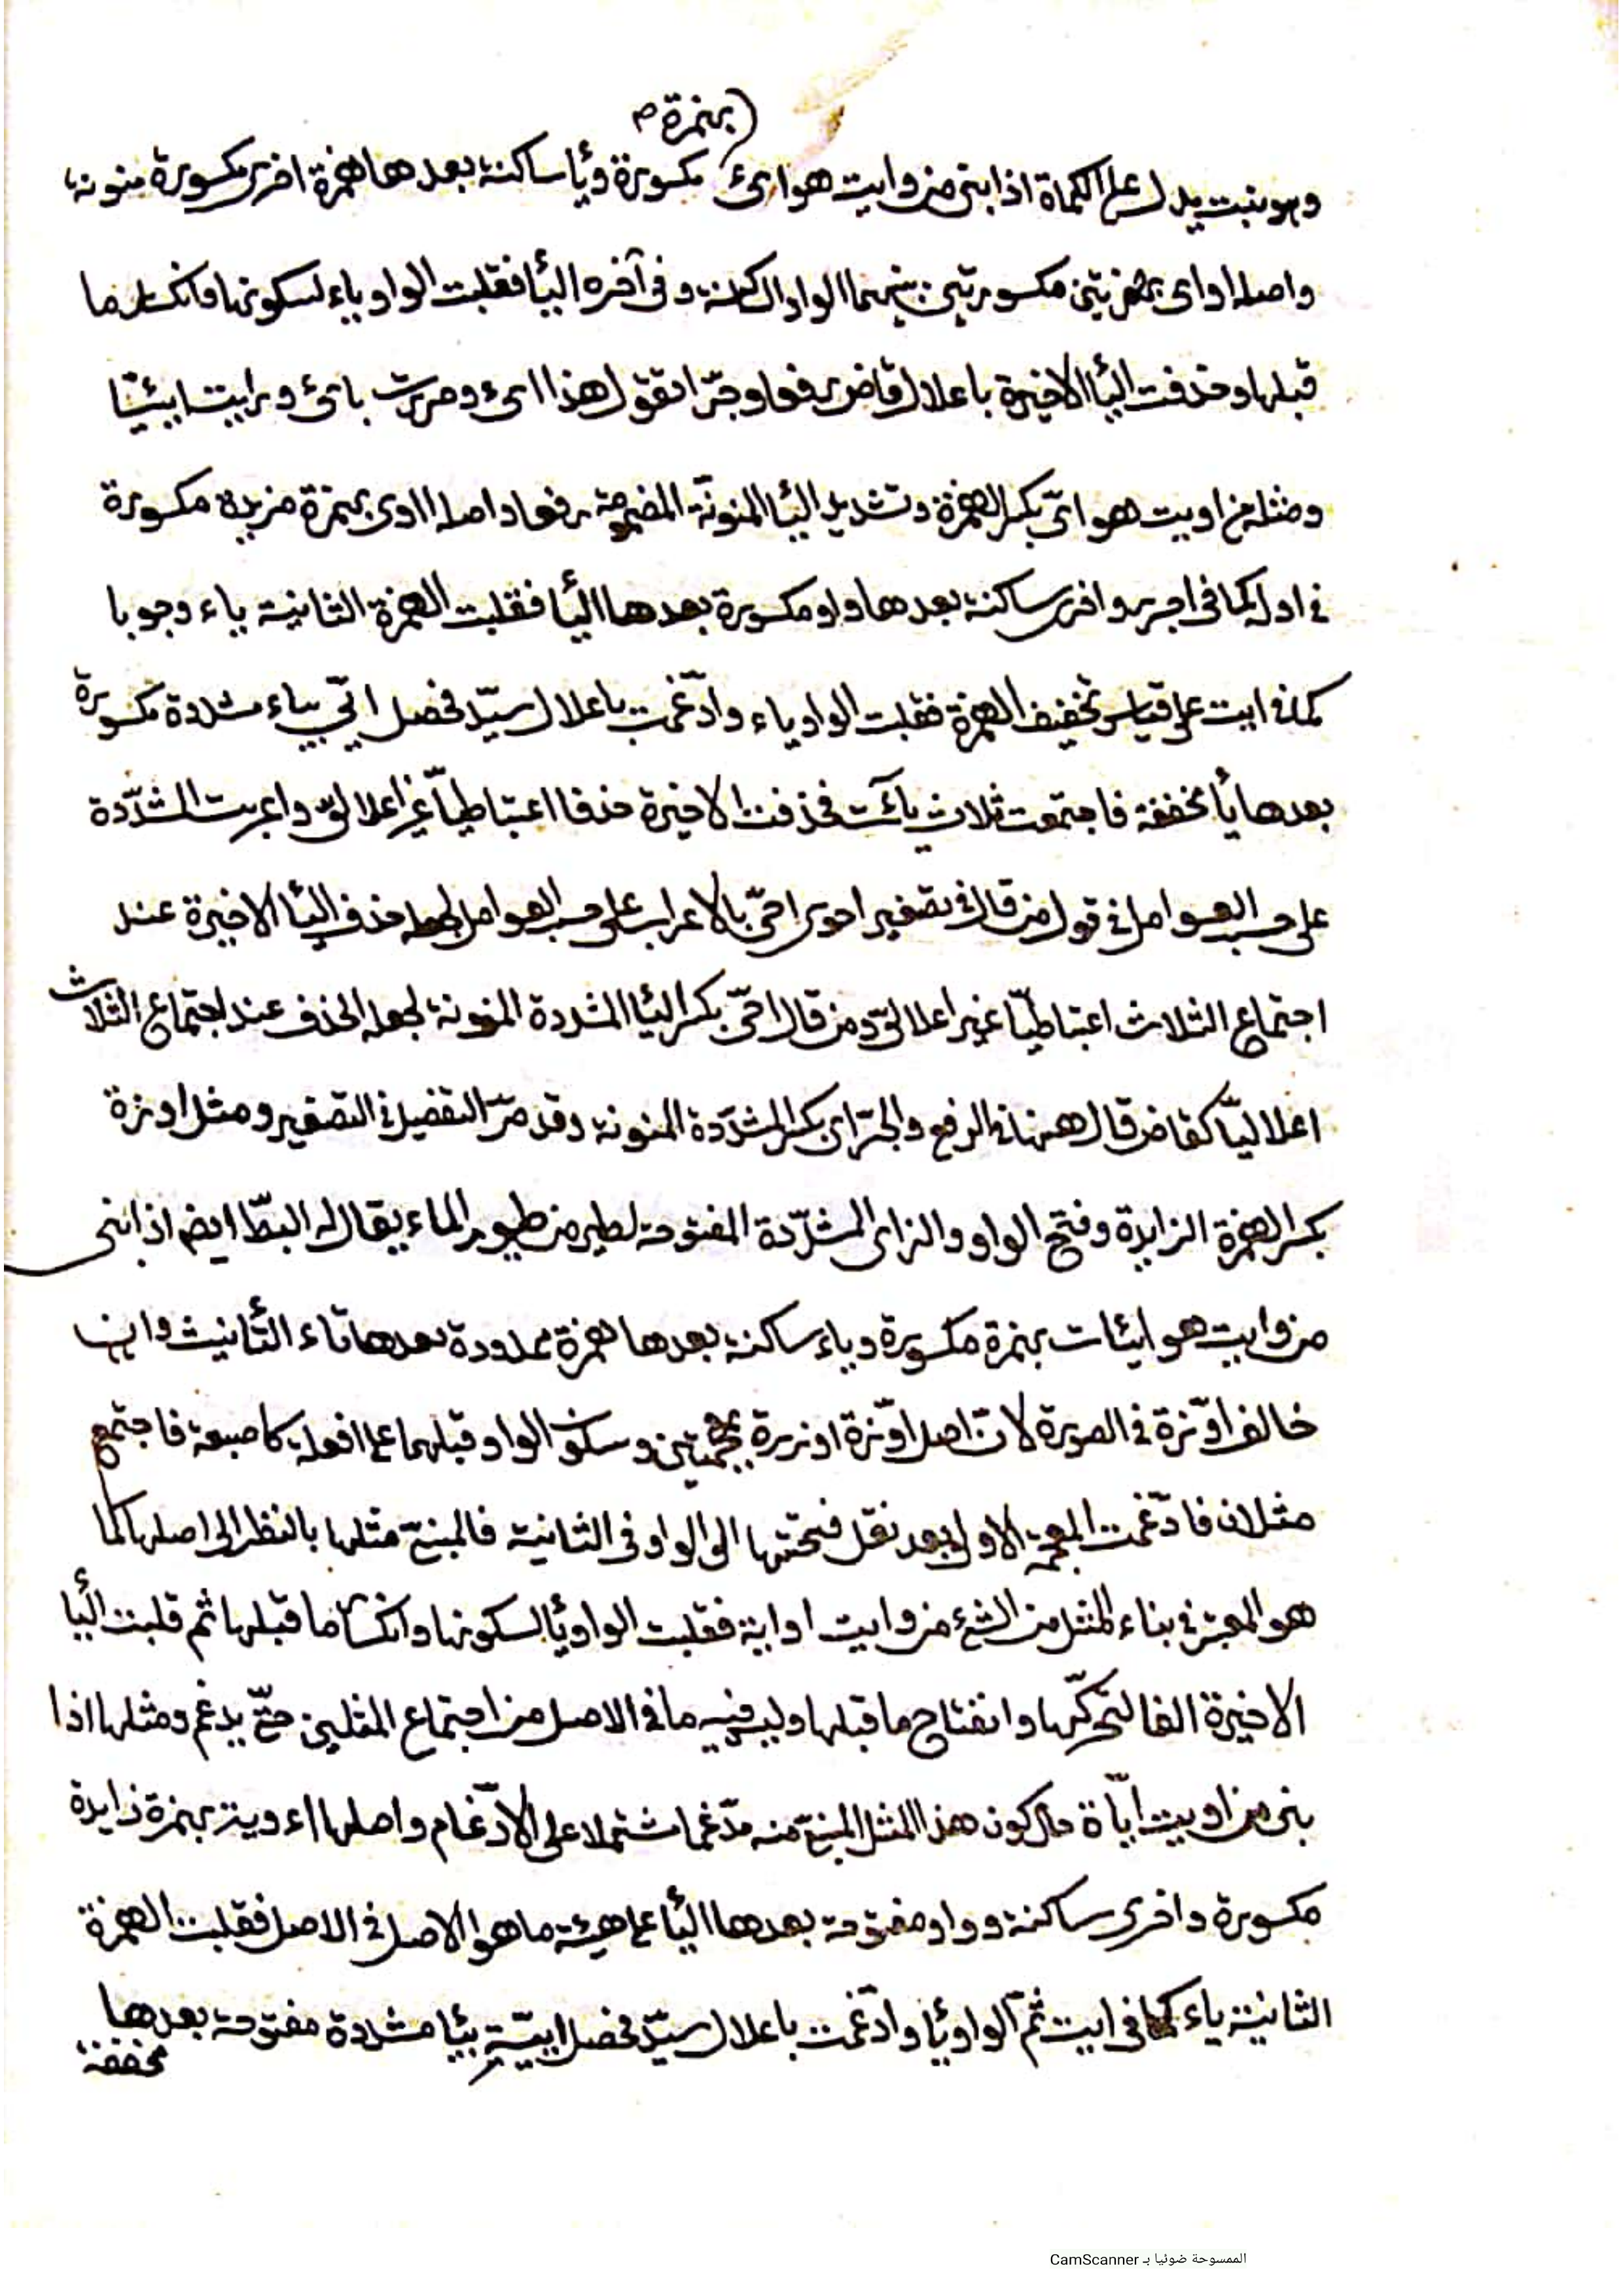 بهمزة ص
وهو نبت يدل على الكماة اذا بنى من وايت هو ائ مكسورة ويأ ساكنة بعدها همزة اخرى مكسورة منونة
واصله اواى بهمزتين مكسورتين بينهما الواو الساكنة وفى آخره اليأ فقلبت الواو ياء لسكونها وانكسار ما
قبلها وحذفت اليأ الاخيرة باعلال قاض رفعا وجرّا تقول هذا ائ ومررت بائ ورايت ايئيًا
ومثله من اويت هو اىّ بكسر الهمزة وتشديد اليأ المنونّة المضمومة رفعا واصله ااوى بهمزة مزيدة مكسورة
فى اوله كما فى اجرد واخرى ساكنة بعدها واو مكسورة بعدها اليأ فقلبت الهمزة الثانية ياء وجوبا
كما فى ايت على قياس تخفيف الهمزة فقلبت الواو ياء وادّغمت باعلال سيّد فحصل ايّى بياء مشددة مكسورة
بعدها يأ مخففة فاجتمعت ثلاث يائت فحذفت الاخيرة حذفا اعتباطيّا غير اعلالىّ واعربت المشدّدة
على حسب العوامل فى قول من قال فى تصغير احوى احىّ بالاعراب على حسب العوامل لجعله حذف اليأ الاخيرة عند
اجتماع الثلاث اعتباطيّا غير اعلالىّ ومن قال احىّ بكسر اليأ المشددة المنونة لجعله الحذف عند اجتماع الثلاث
اعلاليّا كقاض قال ههنا فى الرفع والجرّ اىّ بكسر المشدّدة المنونة وقد مرّ التفصيل فى التصغير ومثل اوزة
بكسر الهمزة الزايدة وفتح الواو والزاى المشدّدة المفتوحة لطير من طيور الماء يقال له البطّ ايضا اذا بنى
من وايت هو ايئات بهمزة مكسورة وياء ساكنة بعدها همزة ممدودة بعدها تاء التّأنيث وان
خالف اوّزة فى الصورة لانّ اصل اوّزة اوززة بمعجمتين وسكون الواو قبلهما على افعلة كاصبعة فاجتمع
مثلان فادّغمت المعجمة الاولى بعد نقل فتحتها الى الواو فى الثانية فالمبنىّ مثلها بالنظر الى اصلها كما
هو المعتبر فى بناء المثل من الشئ من وايت اواية فقلبت الواو يأ لسكونها وانكسار ما قبلها ثم قلبت اليأ
الاخيرة الفا لتحرّكها وانفتاح ما قبلها وليس فيه ما فى الاصل من اجتماع المثلين حتّى يدغم ومثلها اذا
بنى من اويت ايّاة حال كون هذا المثل المبنىّ منه مدّغما مشتملا على الادّغام واصلها اءوية بهمزة زايدة
مكسورة واخرى ساكنة وواو مفتوحة بعدها اليأ على هيئة ما هو الاصل فى الاصل فقلبت الهمزة
الثانية ياء كما فى ايت ثمّ الواو يأ وادّغمت باعلال سيّد فحصل اييّة بيأ مشددة مفتوحة بعدها
مخففة
الممسوحة ضوئيا بـ CamScanner